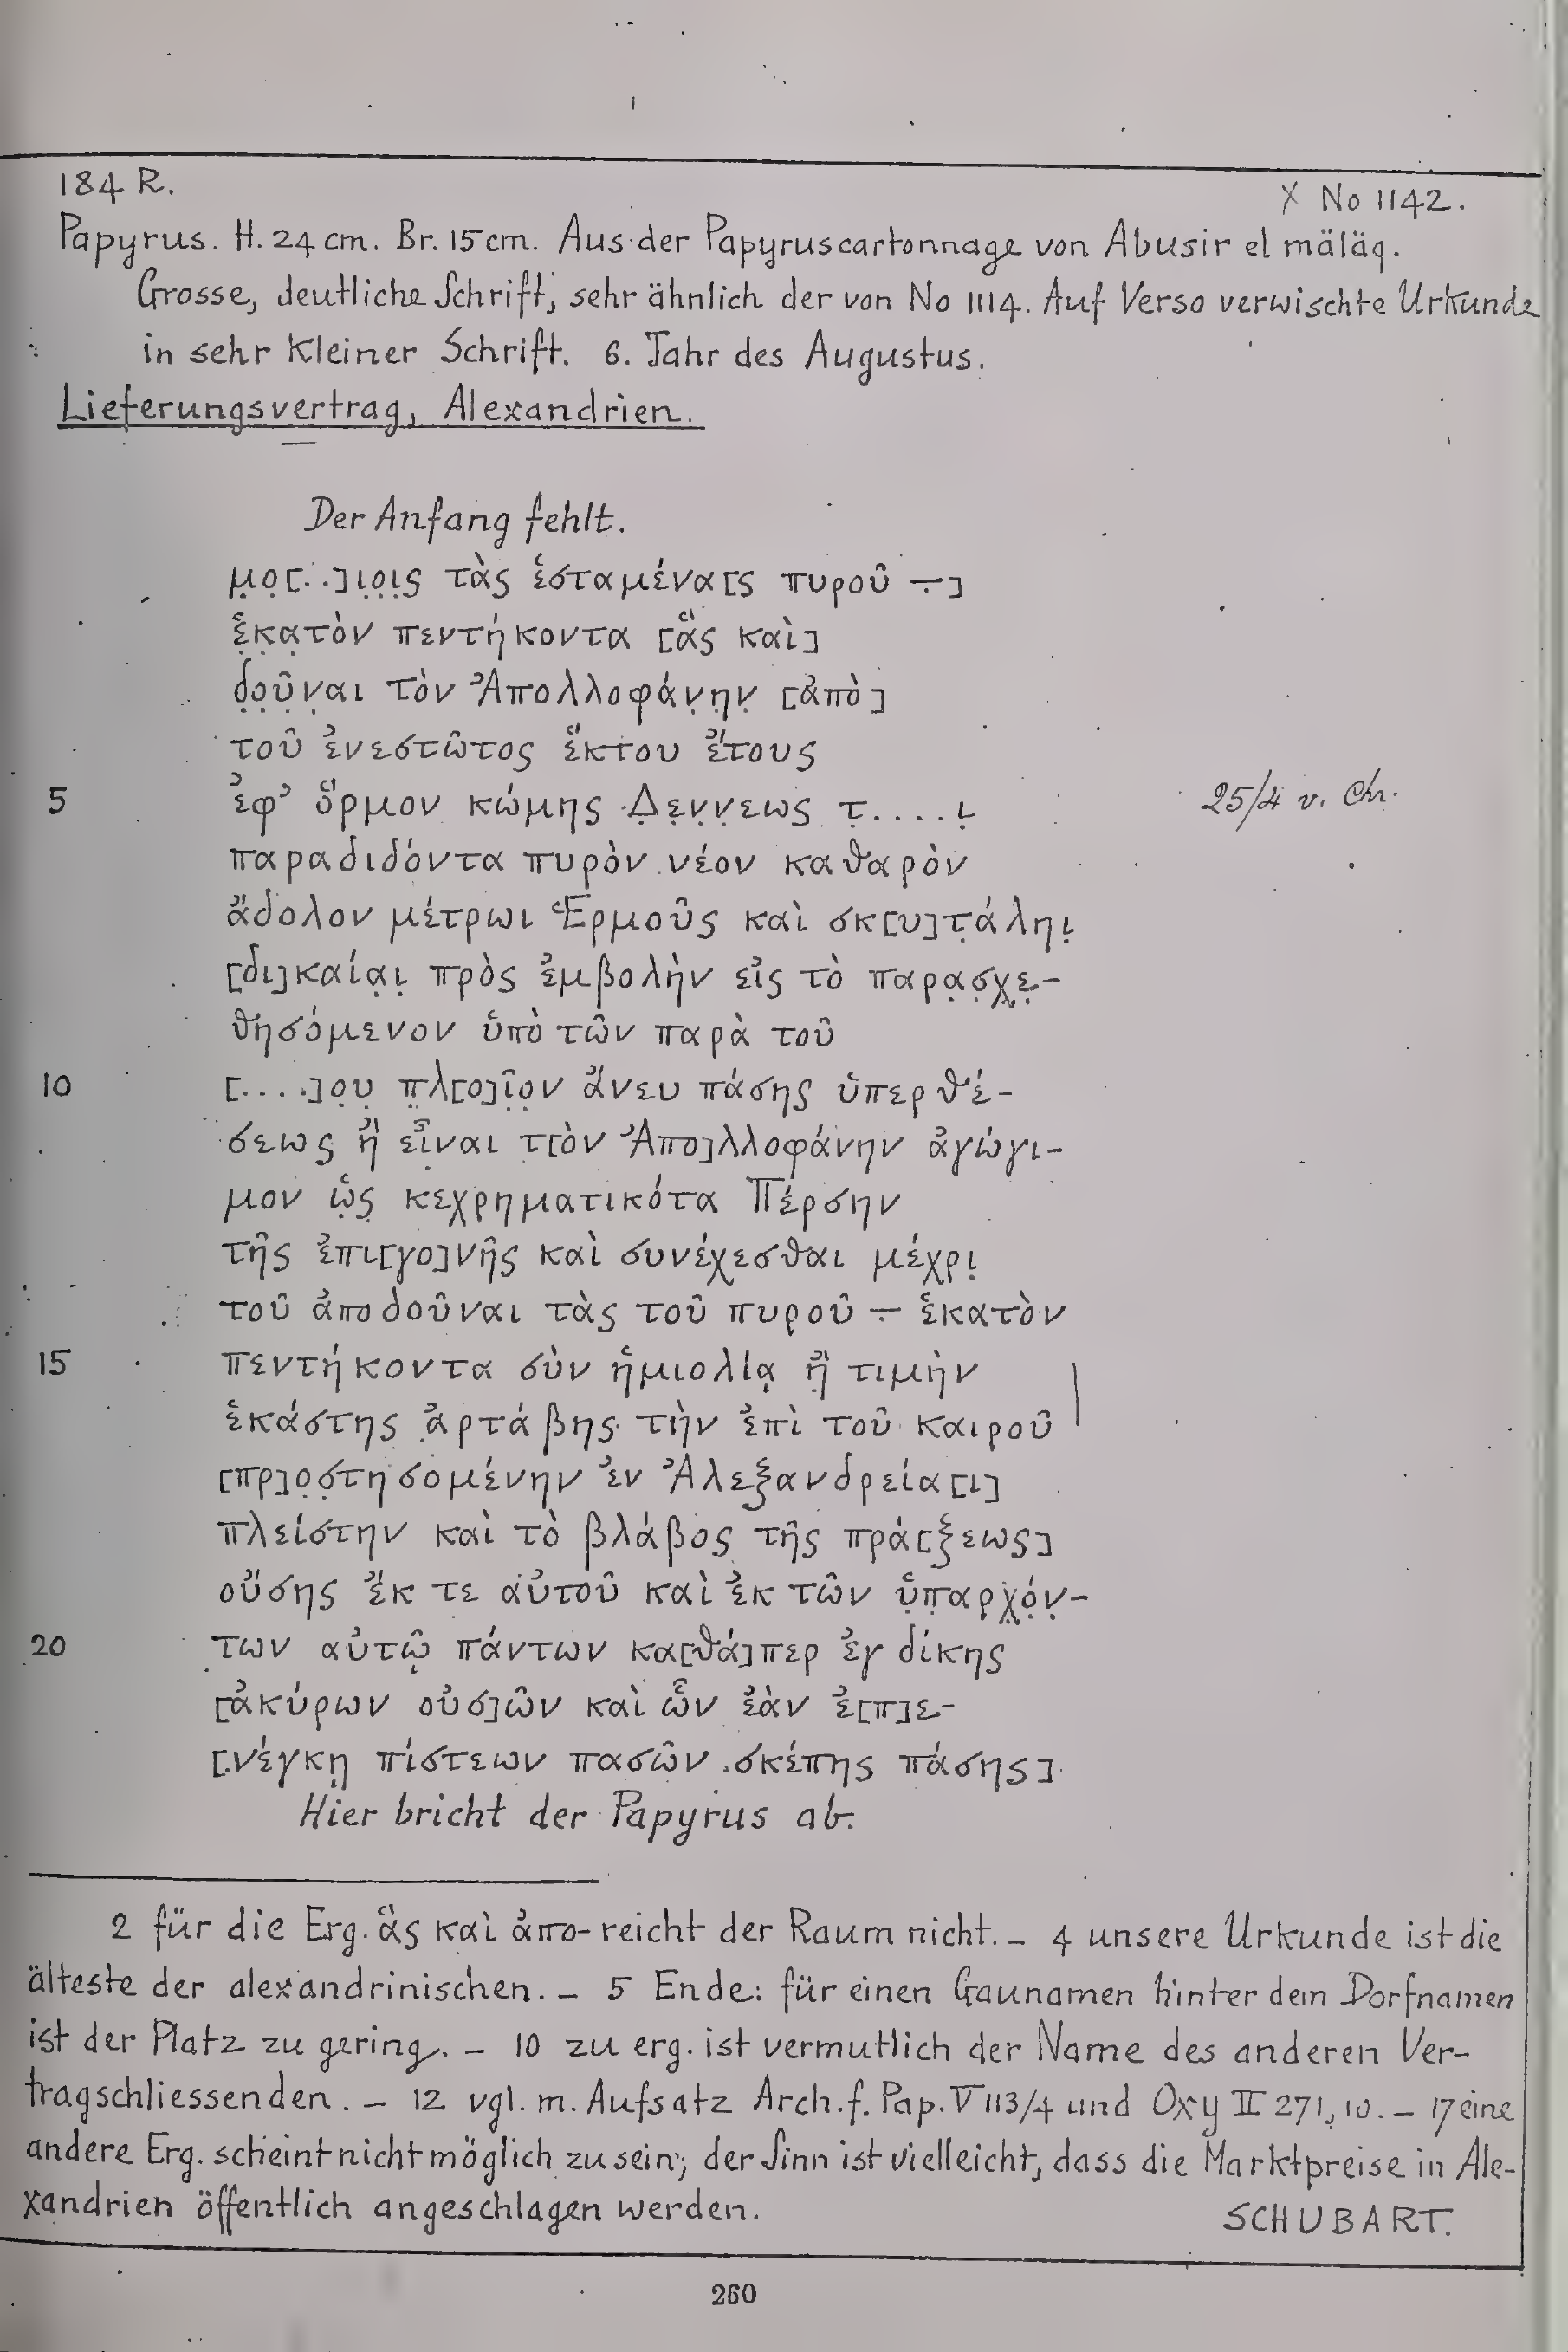 184 R.
X No 1142.
Papyrus. H. 24 cm. Br. 15 cm. Aus der Papyruscartonnage von Abusir el mäläq.
Grosse, deutliche Schrift, sehr ähnlich der von No 1114. Auf Verso verwischte Urkunde
in sehr kleiner Schrift. 6. Jahr des Augustus.
Lieferungsvertrag, Alexandrien.
Der Anfang fehlt.
μ̣ο̣[..]ι̣ο̣ι̣ς τὰς ἑσταμένα[ς πυροῦ ÷]
ἑ̣κ̣α̣τὸν πεντήκοντα [ἃς καὶ]
δ̣ο̣ῦ̣ν̣αι τὸν Ἀπολλοφάν̣η̣ν̣ [ἀπὸ]
τοῦ ἐνεστῶτος ἕκτου ἔτους
5 ἐφ’ ὅρμον κώμης Δ̣ε̣ν̣ν̣εως τ̣....ι̣
25/4 v. Chr.
παραδιδόντα πυρὸν νέον καθαρὸν
ἄδολον μέτρωι Ἑρμοῦς καὶ σκ[υ]τ̣άληι̣
[δι]καία̣ι̣ πρὸς ἐμβολὴν εἰς τὸ παρα̣σ̣χ̣ε̣-
θησόμενον ὑπὸ τῶν παρὰ τοῦ
10 [....]ο̣υ̣ π̣λ̣[ο]ῖ̣ο̣ν ἄνευ πάσης ὑπερθέ-
σεως ἢ εἶναι τ[ὸν Ἀπο]λλοφάνην ἀγώγι-
μον ὡ̣ς̣ κεχρηματικότα Πέρσην
τῆς ἐπι[γο]νῆς καὶ συνέχεσθαι μέχρι̣
τοῦ ἀποδοῦναι τὰς τοῦ πυροῦ ÷ ἑκατὸν
15 πεντήκοντα σὺν ἡμιολίᾳ ἢ̣ τιμὴν
ἑκάστης ἀρτάβης τὴν ἐπὶ τοῦ καιροῦ
[πρ]ο̣σ̣τησομένην ἐν Ἀλεξανδρεία[ι]
πλείστην καὶ τὸ βλάβος τῆς πρά[ξεως]
οὔσης ἔκ τε αὐτοῦ καὶ ἐκ τῶν ὑ̣π̣αρχ̣ό̣ν̣-
20 των αὐτῷ πάντων κα[θά]περ ἐγ δίκης
[ἀκύρων οὐσ]ῶν καὶ ὧν ἐὰν ἐ[π]ε-
[νέγκῃ πίστεων πασῶν σκέπης πάσης]
Hier bricht der Papyrus ab.
2 für die Erg. ἃς καὶ ἀπο- reicht der Raum nicht. – 4 unsere Urkunde ist die
älteste der alexandrinischen. – 5 Ende: für einen Gaunamen hinter dem Dorfnamen
ist der Platz zu gering. – 10 zu erg. ist vermutlich der Name des anderen Ver-
tragschliessenden. – 12 vgl. m. Aufsatz Arch. f. Pap. V 113/4 und Oxy II 271, 10. – 17 eine
andere Erg. scheint nicht möglich zu sein; der Sinn ist vielleicht, dass die Marktpreise in Ale-
xandrien öffentlich angeschlagen werden.
SCHUBART.
260